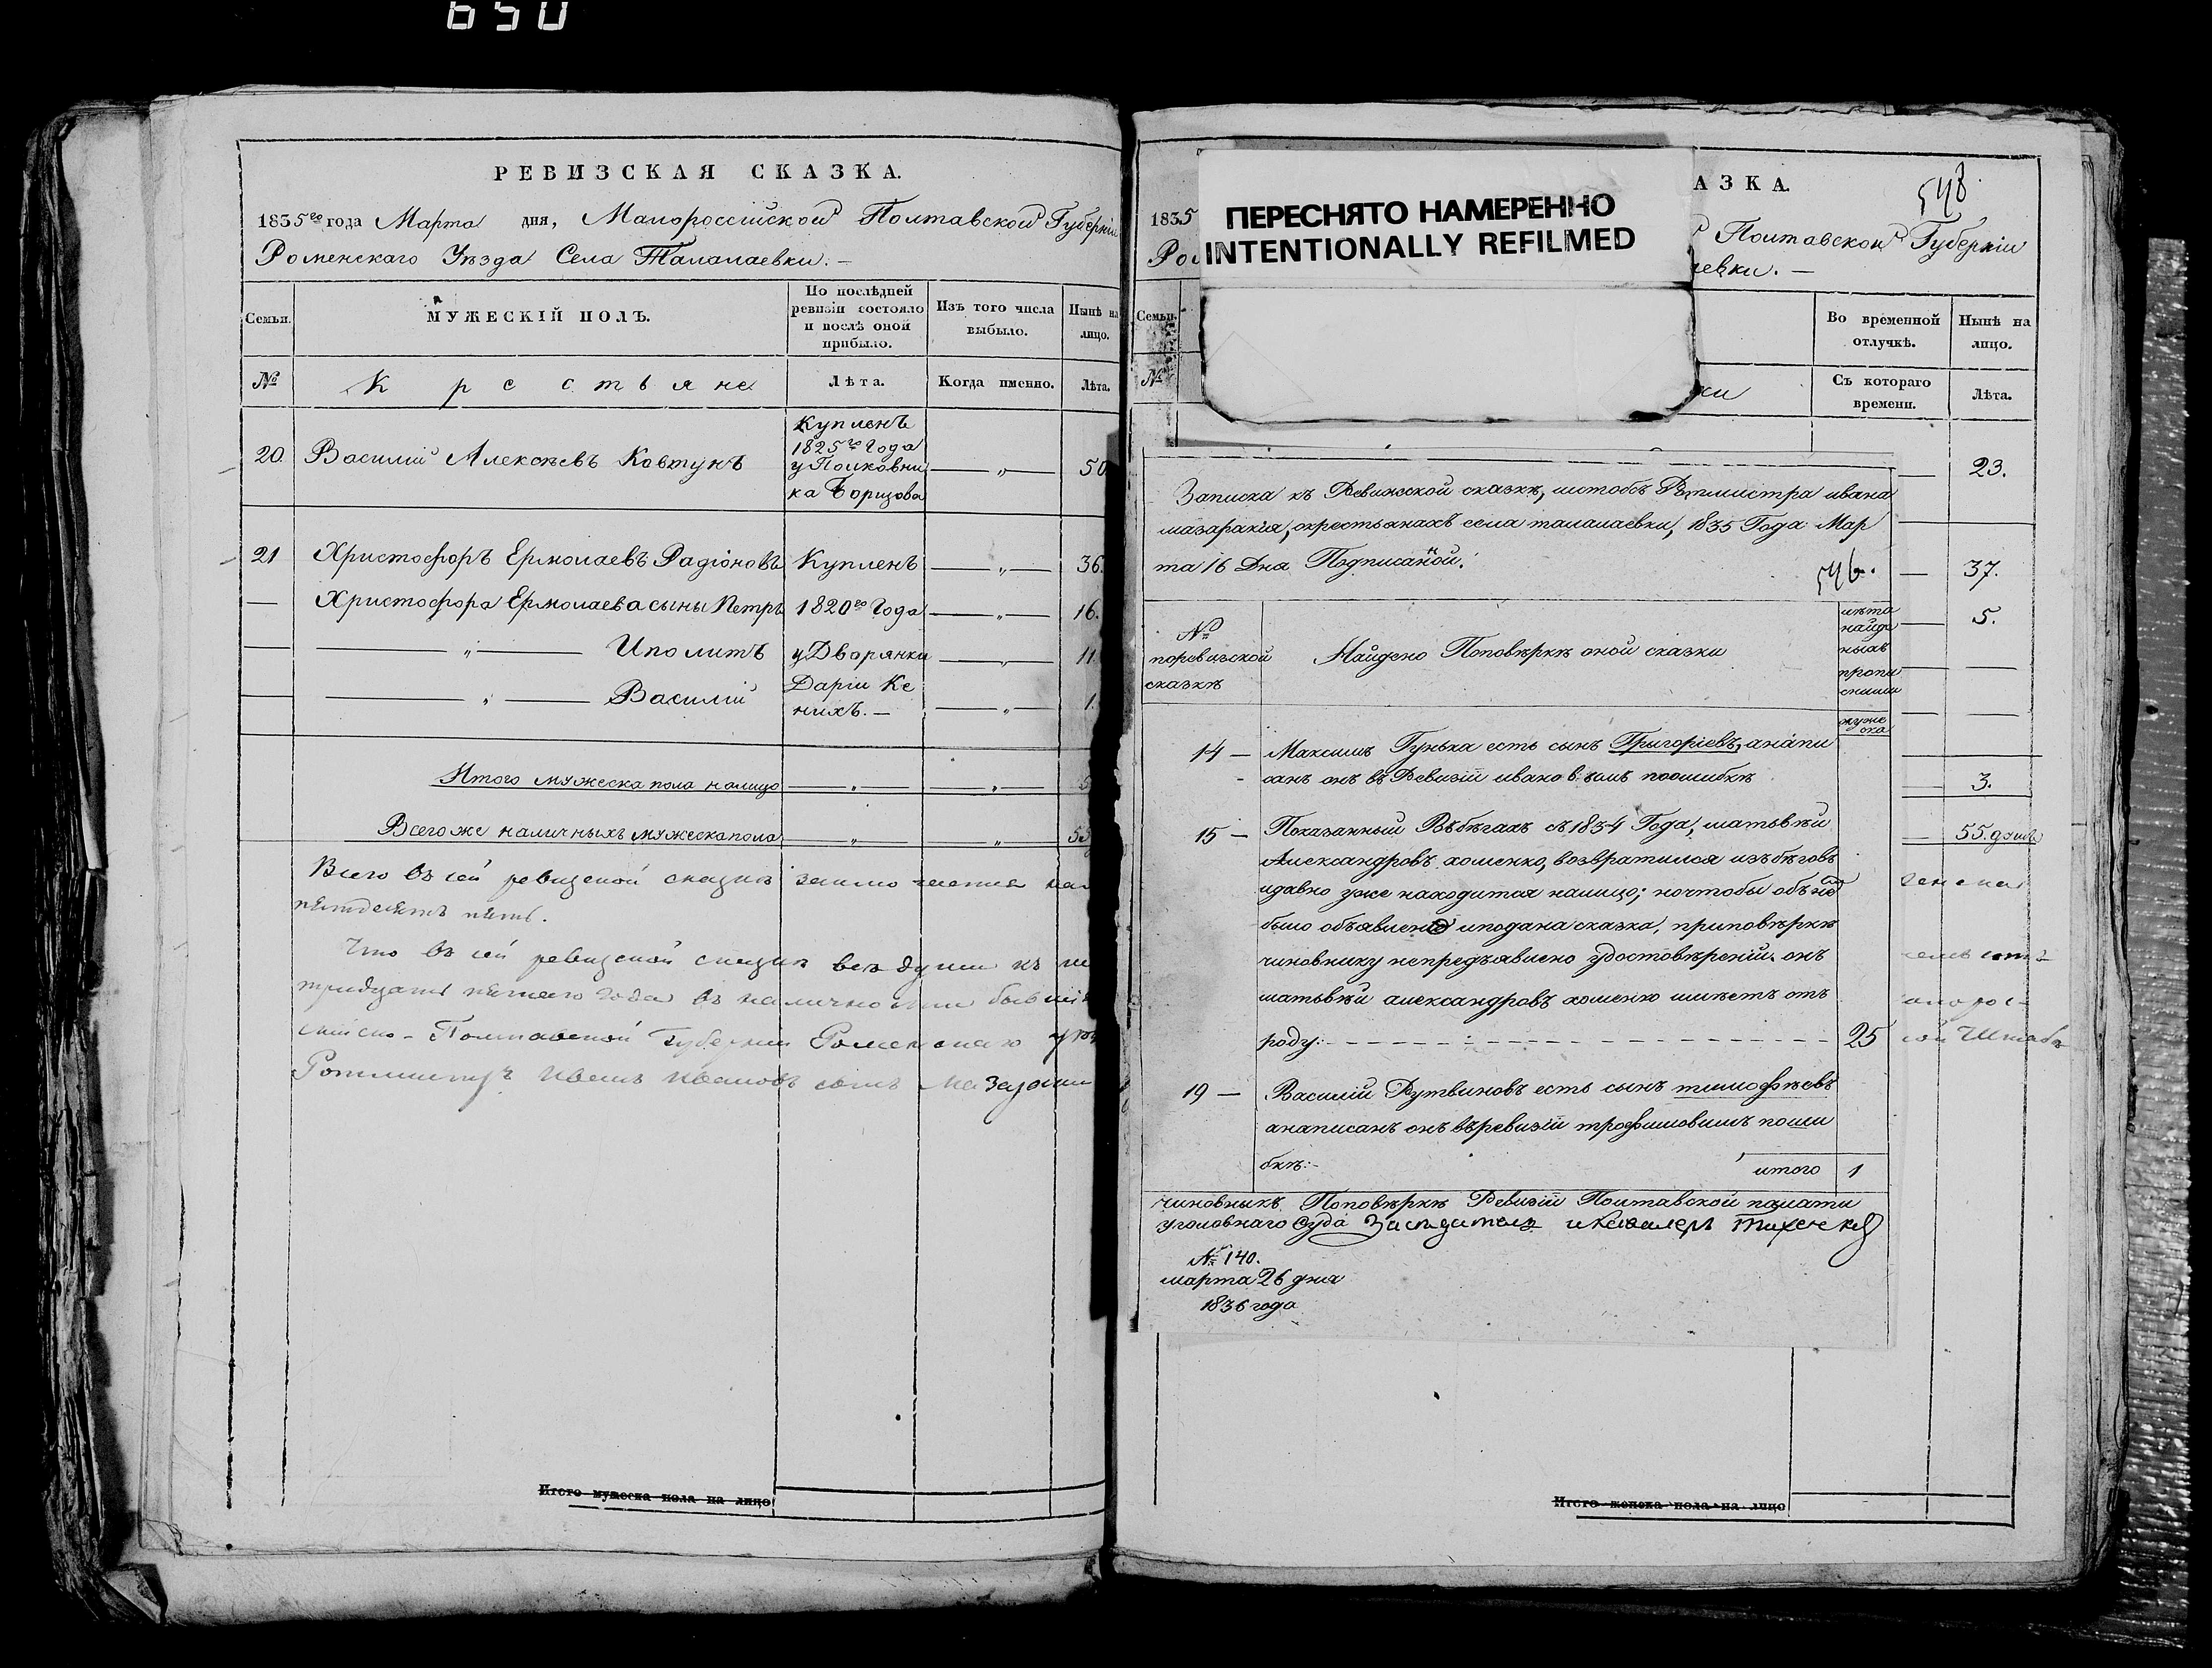 650
РЕВИЗСКАЯ СКАЗКА.
1835го года Марта дня, Малороссийской Полтавской Губерніи
Роменскаго Уѣзда Села Талалаевки. —
Семьи.
МУЖЕСКІЙ ПОЛЪ.
По послѣдней ревизіи состояло и послѣ оной прибыло.
Изъ того числа выбыло.
Нынѣ на лицо.
№
Крестьяне
Лѣта.
Когда именно.
Лѣта.
20. Василій Алексѣевъ Ковтунъ
Купленъ
1825го Года
у Полковни
ка Борщова
50
21 Христофоръ Ермолаевъ Радіоновъ Купленъ — „ — 36.
Христофора Ермолаева сыны Петръ 1820го Года — „ — 16.
— „ — Иполитъ у Дворянки — „ — 11.
Даріи Ке
— „ — Василій нихъ. — — „ — 1.
Итого мужеска пола налицо — „ — — „ — 5
Всего же наличныхъ мужеска пола — „ — — „ — 55
Всего въ сей ревизской сказкѣ
пятдесятъ пять.
Что въ сей ревизской сказкѣ всѣ души къ
тридцать пятаго года въ наличности бывші
сійско-Полтавской Губерніи Роменскаго
Ротмистръ Иванъ Ивановъ сынъ Мазараки
Итого мужеска пола на лицо
ПЕРЕСНЯТО НАМЕРЕННО
INTENTIONALLY REFILMED
АЗКА.
548.
1835
Полтавской Губерніи
Ро
аевки. —
Семьи.
Во временной отлучкѣ.
Нынѣ на лицо.
№
ки
Съ котораго времени.
Лѣта.
23.
37.
5.
3.
55. душъ
женска
Штабъ
Записка къ Ревизской сказкѣ, штабсъ Ротмистра ивана
мазаракія, окрестьянахъ села талалаевки, 1835 Года Мар
та 16 Дня Подписанной.
546.
№
поревизской
сказкѣ
Найдено Поповѣркѣ оной сказки
лѣта
найде
ныхъ
пропи
сными
муже
ска
14 — Максимъ Гунька есть сынъ Григоріевъ, анапи
санъ онъ въ Ревизіи ивановымъ поошибкѣ
15 — Показанный Въбѣгахъ съ 1834 Года, матвѣй
Александровъ хоменко, возвратился изъбѣговъ
идавно уже находится налицо; ночтобы объ немъ
было объявлено иподана сказка, приповѣркѣ
чиновнику непредъявлено удостовѣреній. онъ
матвѣй александровъ хоменко имѣетъ отъ
роду: 25
19 — Василій Рутвиновъ есть сынъ тимофѣевъ
анаписанъ онъ въревизіи трофимовымъ пооши
бкѣ:-
итого 1
чиновникъ Поповѣркѣ Ревизіи Полтавской палаты
уголовнаго суда Засѣдатель и Кавалеръ
№ 140.
марта 26 дня
1836 года
Итого женска пола на лицо